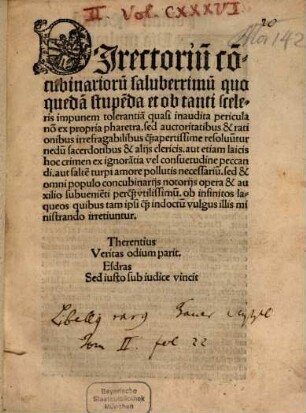 II. Vol. CXXXVI
20
Mor 142
DIrectoriũ cõ-
cubinariorũ saluberrimũ quo
quedã stupẽda et ob tanti scele-
ris impunem tolerantiã quasi inaudita pericula
nõ ex propria pharetra, sed auctoritatibus & rati
onibus irrefragabilibus q̃apertissime resoluũtur
nedũ sacerdotibus & alijs clericis. aut etiam laicis
hoc crimen ex ignorãtia vel consuetudine peccan
di. aut saltẽ turpi amore pollutis necessariũ. sed &
omni populo concubinarijs notorijs opera & au
xilio subueniẽti perq̃vtilissimũ. ob infinitos la-
queos quibus tam ipsi q̃ indoctũ vulgus illis mi
nistrando irretiuntur.
Therentius
Veritas odium parit.
Esdras
Sed iusto sub iudice vincit
Libellus rarus
Tom II. fol 22
Bayerische
Staatsbibliothek
München